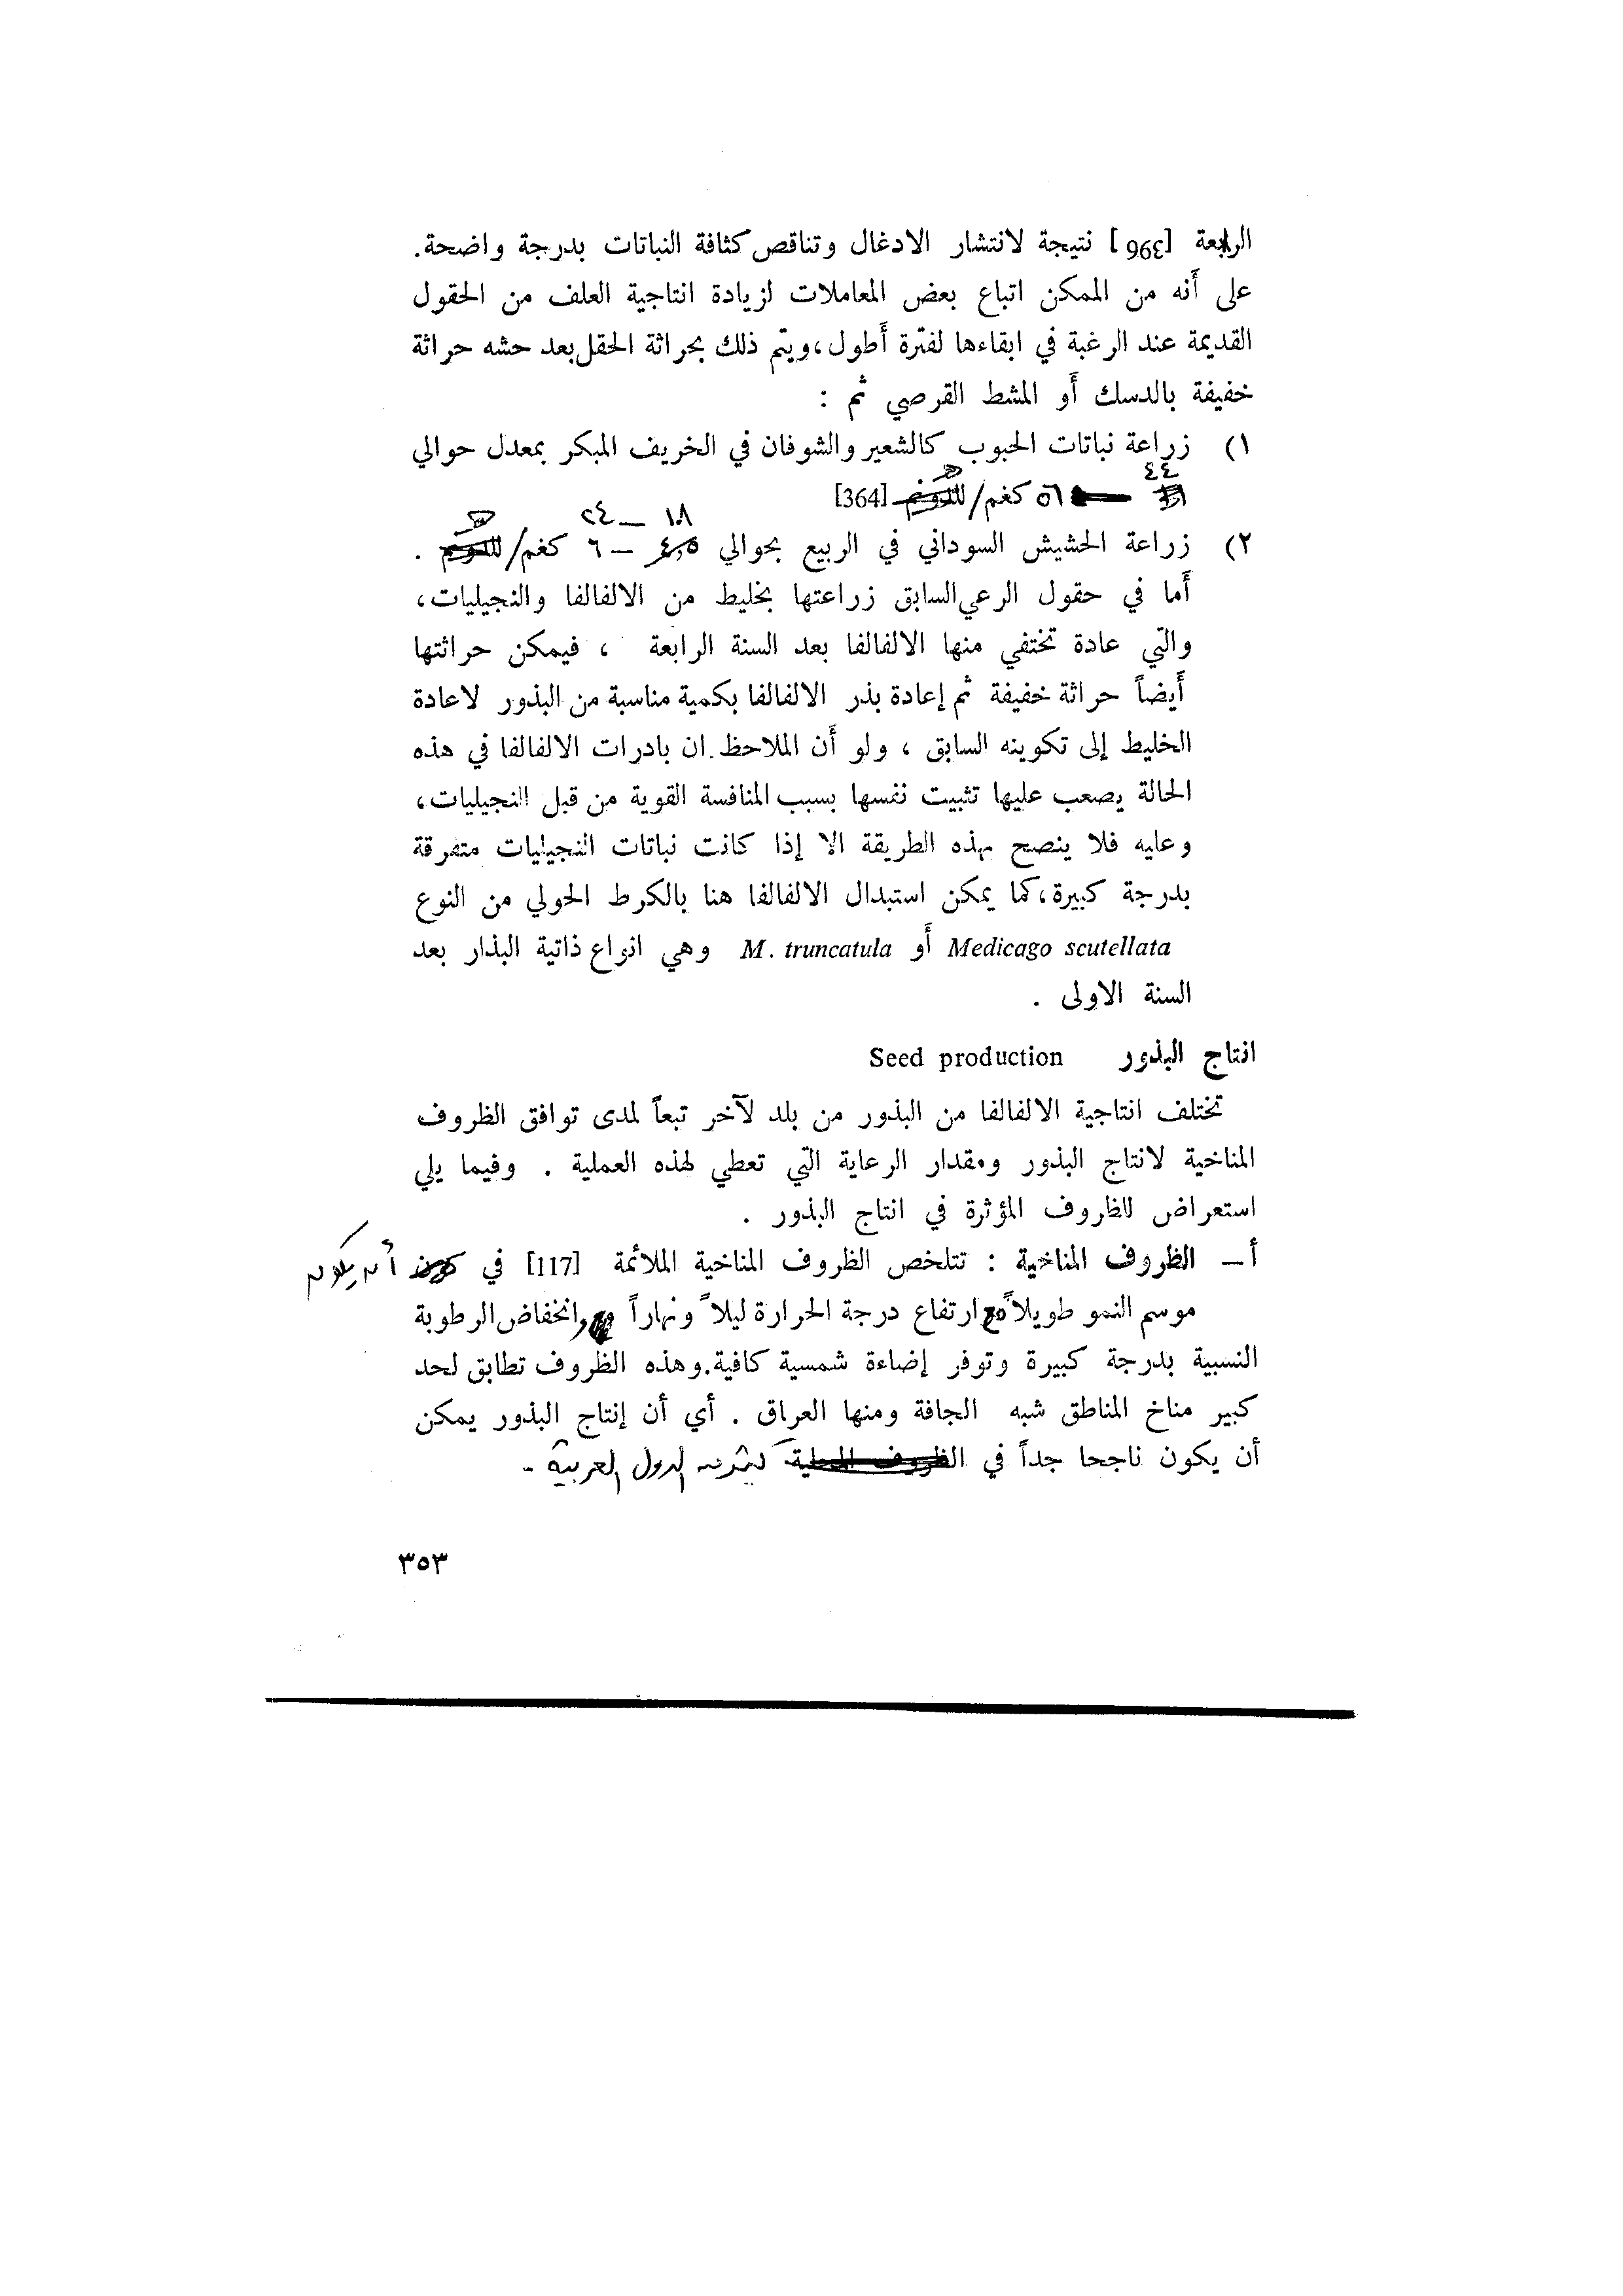 الرابعة [396] نتيجة لانتشار الادغال وتناقص كثافة النباتات بدرجة واضحة.
على أنه من الممكن اتباع بعض المعاملات لزيادة انتاجية العلف من الحقول
القديمة عند الرغبة في ابقاءها لفترة أطول، ويتم ذلك بحراثة الحقل بعد حشه حراثة
خفيفة بالدسك أو المشط القرصي ثم :
١) زراعة نباتات الحبوب كالشعير والشوفان في الخريف المبكر بمعدل حوالي
٤٤
٥٦ كغم/للدونم [364]
١٨ — ٢٤
٢) زراعة الحشيش السوداني في الربيع بحوالي ٤,٥ — ٦ كغم/للدونم .
أما في حقول الرعي السابق زراعتها بخليط من الالفالفا والنجيليات،
والتي عادة تختفي منها الالفالفا بعد السنة الرابعة ، فيمكن حراثتها
أيضاً حراثة خفيفة ثم إعادة بذر الالفالفا بكمية مناسبة من البذور لاعادة
الخليط إلى تكوينه السابق ، ولو أن الملاحظ ان بادرات الالفالفا في هذه
الحالة يصعب عليها تثبيت نفسها بسبب المنافسة القوية من قبل النجيليات،
وعليه فلا ينصح بهذه الطريقة الا إذا كانت نباتات النجيليات متفرقة
بدرجة كبيرة، كما يمكن استبدال الالفالفا هنا بالكرط الحولي من النوع
Medicago scutellata أو M. truncatula وهي انواع ذاتية البذار بعد
السنة الاولى .
انتاج البذور Seed production
تختلف انتاجية الالفالفا من البذور من بلد لآخر تبعاً لمدى توافق الظروف
المناخية لانتاج البذور ومقدار الرعاية التي تعطي لهذه العملية . وفيما يلي
استعراض للظروف المؤثرة في انتاج البذور .
أ — الظروف المناخية : تتلخص الظروف المناخية الملائمة [117] في كون أن يكون
موسم النمو طويلاً مع ارتفاع درجة الحرارة ليلاً ونهاراً وانخفاض الرطوبة
النسبية بدرجة كبيرة وتوفر إضاءة شمسية كافية. وهذه الظروف تطابق لحد
كبير مناخ المناطق شبه الجافة ومنها العراق . أي أن إنتاج البذور يمكن
أن يكون ناجحا جداً في الظروف المحلية لكثير من الدول العربية .
٣٥٣